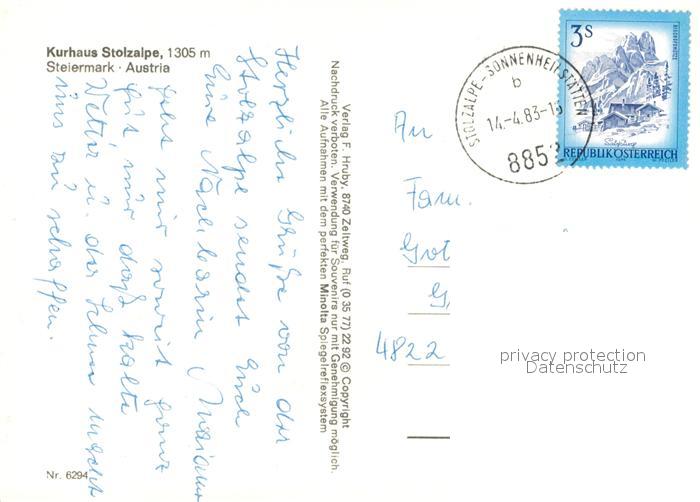 Kurhaus Stolzalpe, 1305 m
Steiermark · Austria
Herzliche Grüße von der
Stolzalpe sendet Euch
Eure Nachbarin
geht mir soweit ganz
gut nur das kalte
Wetter u. der Schnee macht
uns zu schaffen.
Nr. 6294
Verlag F. Hruby, 8740 Zeltweg, Ruf (0 35 77) 22 92 © Copyright
Nachdruck verboten. Verwendung für Souvenirs nur mit Genehmigung möglich.
Alle Aufnahmen mit dem perfekten Minolta Spiegelreflexsystem
STOLZALPE-SONNENHEILSTÄTTEN
b
14.-4.83-
8852
3S
REPUBLIK ÖSTERREICH
An
Fam.
G
4822
privacy protection
Datenschutz